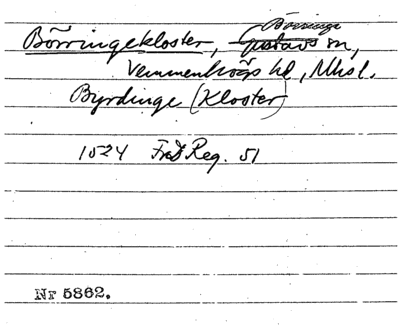 Börringe
Börringekloster, Gustavs sn,
Vemmenhögs hd, Mhsl.
Byrdinge (Kloster)
1524 FrdReg. 51
Nr 5862.